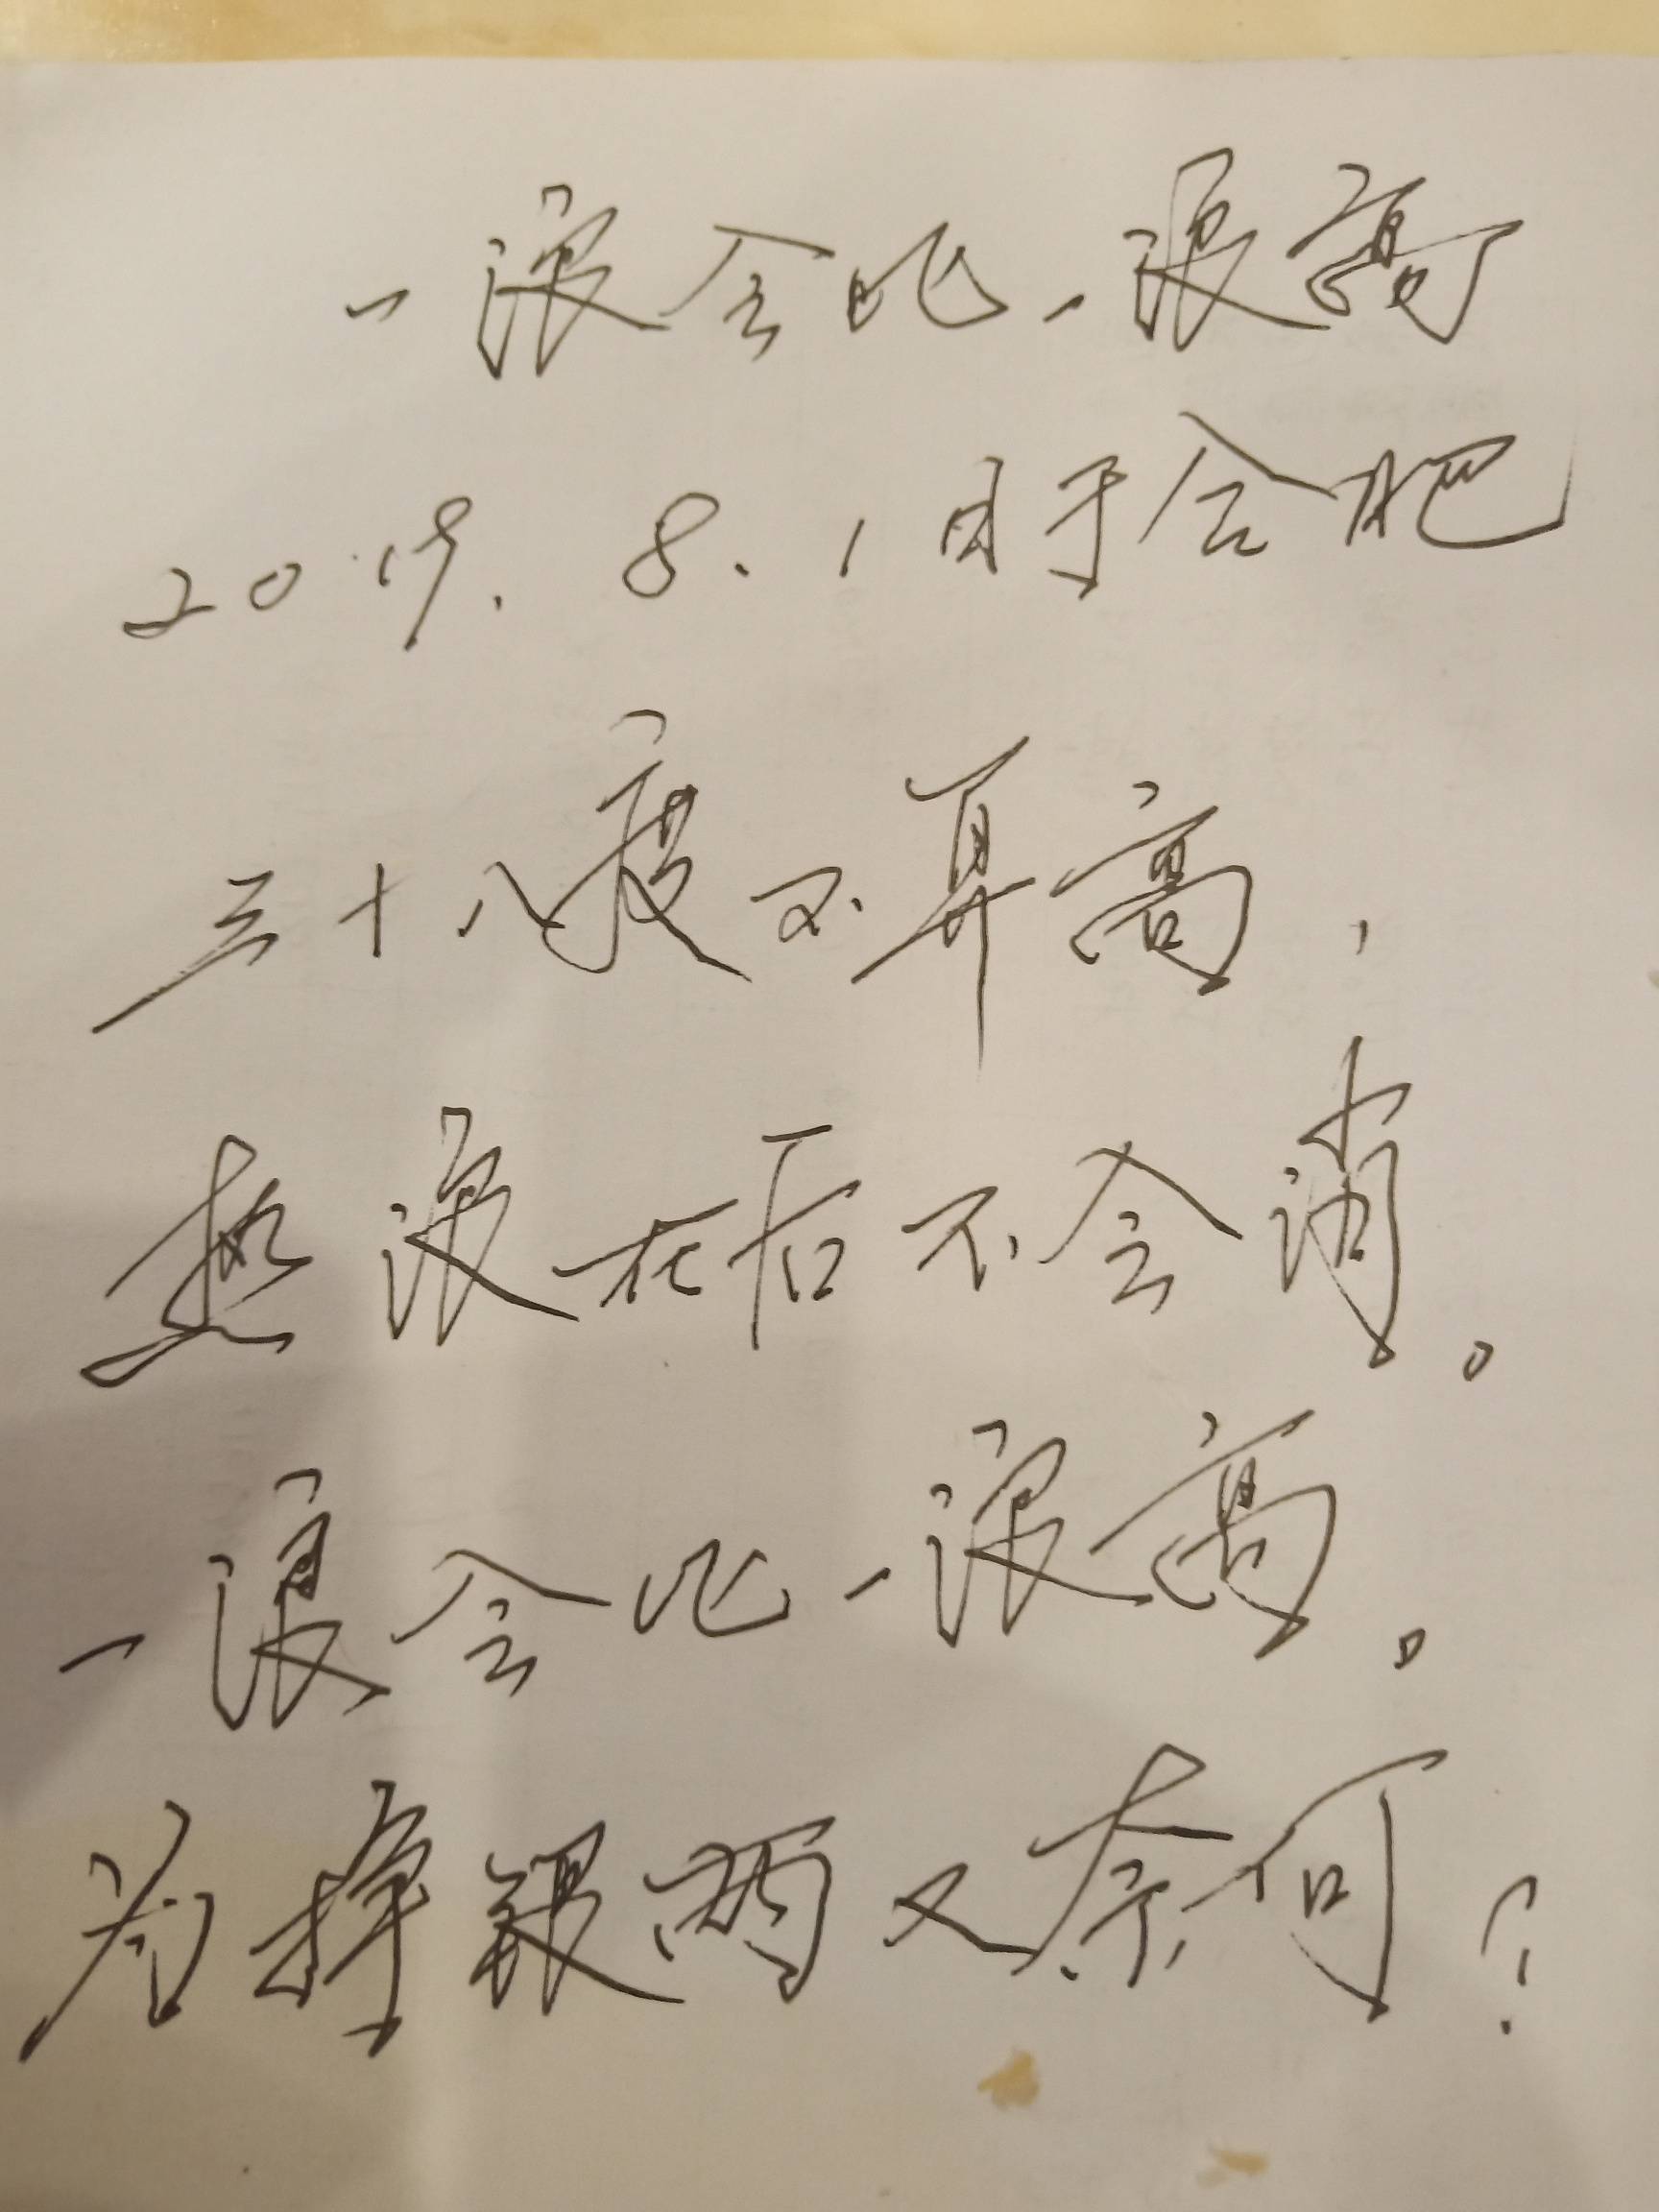 一浪会比一浪高
2019.8.1日于合肥
三十八度不算高，
热浪在后不会消。
一浪会比一浪高。
为挣银两又奈何？